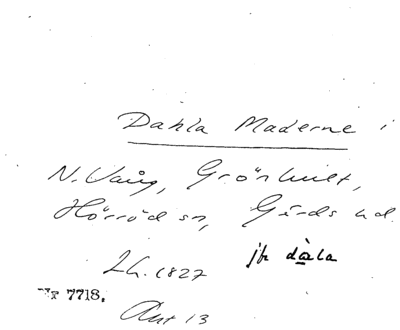 Dahla Maderne i
N. Vång, Grönhult,
Hörröd sn, Gärds hd.
Lh. 1827 jfr dàla
Nr 7718.
Akt 13